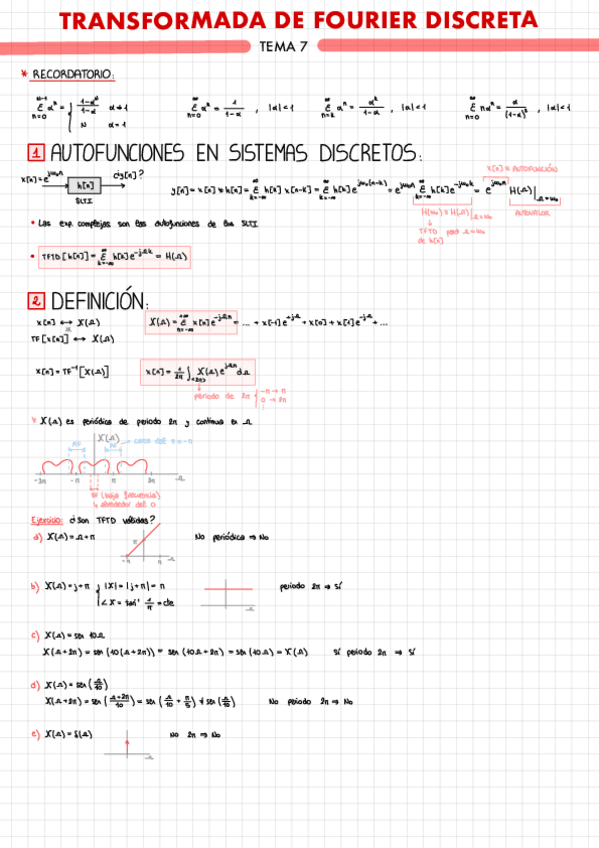 TRANSFORMADA DE FOURIER DISCRETA
TEMA 7
* RECORDATORIO:
N-1 Σ n=0 αⁿ = { (1-αᴺ)/(1-α) α≠1
N α=1
∞ Σ n=0 αⁿ = 1/(1-α) , |α|<1
∞ Σ n=k αⁿ = αᵏ/(1-α) , |α|<1
∞ Σ n=0 nαⁿ = α/(1-α)² , |α|<1
1 AUTOFUNCIONES EN SISTEMAS DISCRETOS:
x[n]=e^{jω₀n} h[n] ¿y[n]?
SLTI
x[n] ≡ AUTOFUNCIÓN
y[n] = x[n] * h[n] = ∞ Σ k=-∞ h[k] x[n-k] = ∞ Σ k=-∞ h[k] e^{jω₀(n-k)} = e^{jω₀n} ∞ Σ k=-∞ h[k] e^{-jω₀k} = e^{jω₀n} H(Ω)|Ω=ω₀
H(ω₀) = H(Ω)|Ω=ω₀
AUTOVALOR
↓
TFTD para Ω=ω₀
de h[n]
• Las exp. complejas son las autofunciones de los SLTI
• TFTD [h[k]] = ∞ Σ k=-∞ h[k] e^{-jΩk} = H(Ω)
2 DEFINICIÓN:
x[n] ↔ X(Ω)
X(Ω) = +∞ Σ n=-∞ x[n] e^{-jΩn} = ... + x[-1] e^{+jΩ} + x[0] + x[1] e^{-jΩ} + ...
TF [x[n]] ↔ X(Ω)
x[n] = TF⁻¹ [X(Ω)]
x[n] = 1/2π ∫<2π> X(Ω) e^{jΩn} dΩ
periodo de 2π { -π → π
0 → 2π
* X(Ω) es periódica de periodo 2π y continua en Ω
X(Ω)
AF
AF
cerca del π = -π
-3π -π π 3π Ω
BF (baja frecuencia)
↳ alrededor del 0
Ejercicio: ¿Son TFTD válidas?
a) X(Ω) = Ω + π
π
-π π Ω
No periódica ⇒ No
b) X(Ω) = j + π { |X| = |j + π| = π
∠X = tan⁻¹ 1/π = cte
Ω
periodo 2π ⇒ Sí
c) X(Ω) = sen 10Ω
X(Ω+2π) = sen (10(Ω+2π)) = sen (10Ω + 2π) = sen (10Ω) = X(Ω)
Sí periodo 2π ⇒ Sí
d) X(Ω) = sen (Ω/10)
X(Ω+2π) = sen ((Ω+2π)/10) = sen (Ω/10 + π/5) ≠ sen (Ω/10)
No periodo 2π ⇒ No
e) X(Ω) = δ(Ω)
Ω
No 2π ⇒ No